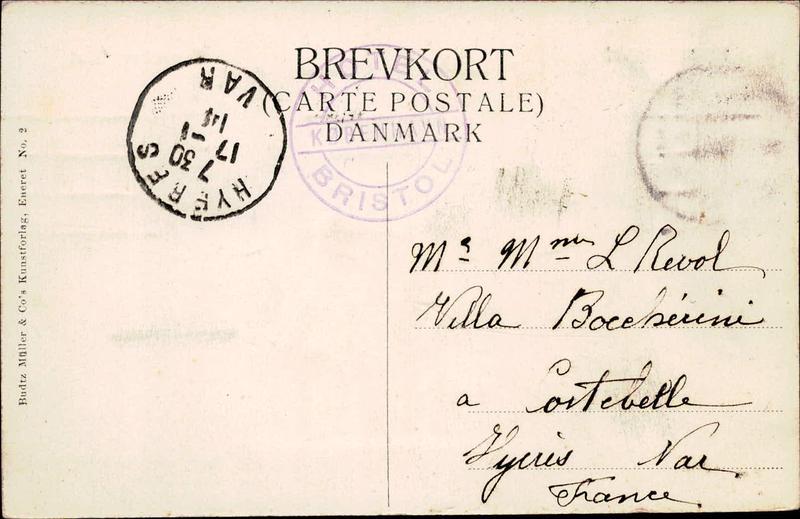 BREVKORT
(CARTE POSTALE)
DANMARK
HOTEL
K
BRISTOL
HYERES
7 30
17 - 1
14
VAR
Mr Mme L Revol
Villa Boccherini
a Costebelle
Hyeres Var
France
Budtz Müller & Co's Kunstforlag, Eneret No. 2